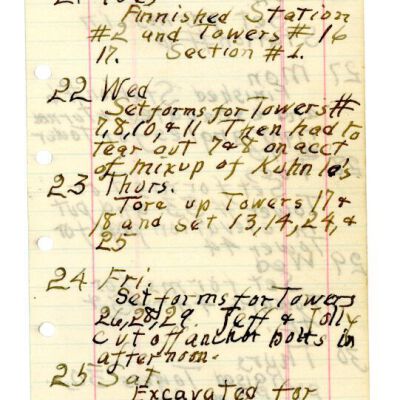 21 Tues
Finnished Station
#2 and Towers #16
17. Section #1.
22 Wed
Set forms for Towers #
7,8,10,&11, Then had to
tear out 7&8 on acct
of mixup of Kuhnle's
23 Thurs.
Tore up Towers 17 &
18 and set 13,14,24,&
25
24 Fri.
Set forms for Towers
26,28,29 Jeff & Jolly
cut off anchor bolts in
afternoon.
25 Sat
Excavated for